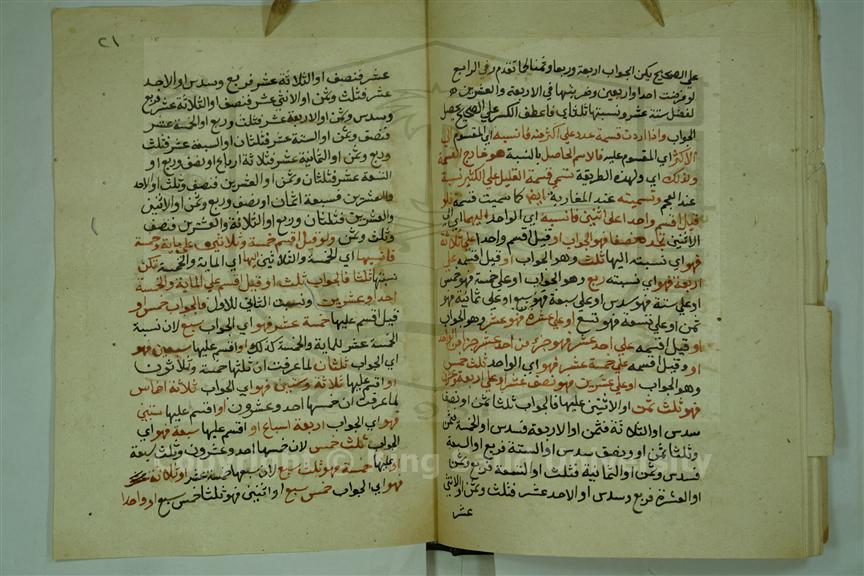 على الصحيح يكن الجواب اربعة وربعا وثمنا لما تقدم وفي الرابع
لو فرضت احدا واربعين وضربتها في الاربعة والعشرين
لفضل ستة عشر ونسبتها ثلثاي فاعطف الكسر على الصحيح يحصل
الجواب واذا اردت قسمة عدد على اكثر منه فانسبه اي المقسوم الى
الاكثر اي المقسوم عليه فالاسم الحاصل بالنسبة هو خارج القسمة
ولذلك اي ولهذه الطريقة تسمى قسمة القليل على الكثير نسبة
عند العجم وتسميته عند المغاربة ايضا كما سميت قسمة فلو
قيل اقسم واحدا على اثنين فانسبه اي الواحد اليهما اي الى
الاثنين تجده نصفا فهو الجواب او قيل اقسم واحدا على ثلاثة
فهو اي نسبته اليها ثلث وهو الجواب او قيل اقسمه على
اربعة فهو اي نسبته ربع وهو الجواب او على خمسة فهو خمس
او على ستة فهو سدس او على سبعة فهو سبع او على ثمانية فهو
ثمن او على تسعة فهو تسع او على عشرة فهو عشر وهو الجواب
او قيل اقسمه على احد عشر فهو جزء من احد عشر جزء من الواحد
او وقيل اقسمه على خمسة عشر فهو اي الواحد ثلث خمس
وهو الجواب او على عشرين فهو نصف عشر او على اربعة وعشرين
فهو ثلث ثمن او الاثنين عليها فالجواب ثلثا ثمن او نصف
سدس او الثلاثة فثمن او الاربعة فسدس او الخمسة فثمن
وثلثا ثمن او ونصف سدس او الستة فربع او السبعة
فسدس وثمن او الثمانية فثلث او التسعة فربع وثمن
او العشرة فربع وسدس او الاحد عشر فثلث وثمن او الاثني
عشر
٢١
عشر فنصف او الثلاثة عشر فربع وسدس او الاحد
عشر فثلث وثمن او الاثني عشر فنصف او الثلاثة عشر فربع
وسدس وثمن او الاربعة عشر فثلث وربع او الخمسة عشر
فنصف وثمن او الستة عشر فثلثان او السبعة عشر فثلث
وربع وثمن او الثمانية عشر فثلاثة ارباع او نصف وربع او
التسعة عشر فثلثان وثمن او العشرين فنصف وثلث او الاحد
والعشرين فسبعة اثمان او نصف وربع وثمن او الاثنين
والعشرين فثلثان وربع او الثلاثة والعشرين فنصف
وثلث وثمن ولو قيل اقسم خمسة وثلاثين على ماية وخمسة
فانسبها اي الخمسة والثلاثين اليها اي الماية والخمسة تكن
نسبتها ثلثا فالجواب ثلث او قيل اقسم على الماية والخمسة
احدا وعشرين ونسبت الثاني للاول فالجواب خمس او
قيل اقسم عليها خمسة عشر فهو اي الجواب سبع لان نسبة
الخمسة عشر للماية والخمسة كذلك او اقسم عليها سبعين فهو
اي الجواب ثلثان لما عرفت ان ثلثها خمسة وثلاثون
او اقسم عليها ثلاثة وستين فهو اي الجواب ثلاثة اخماس
لما عرفت ان خمسها احد وعشرون او اقسم عليها ستين
فهو اي الجواب اربعة اسباع او اقسم عليها سبعة فهو اي
الجواب ثلث خمس لان خمسها احد وعشرون وثلث سبعة
او عليها خمسة فهو ثلث سبع لان سبعها خمسة عشر او ثلاثة
فهو اي الجواب خمس سبع او اثنين فهو ثلثا خمس سبع او واحدا